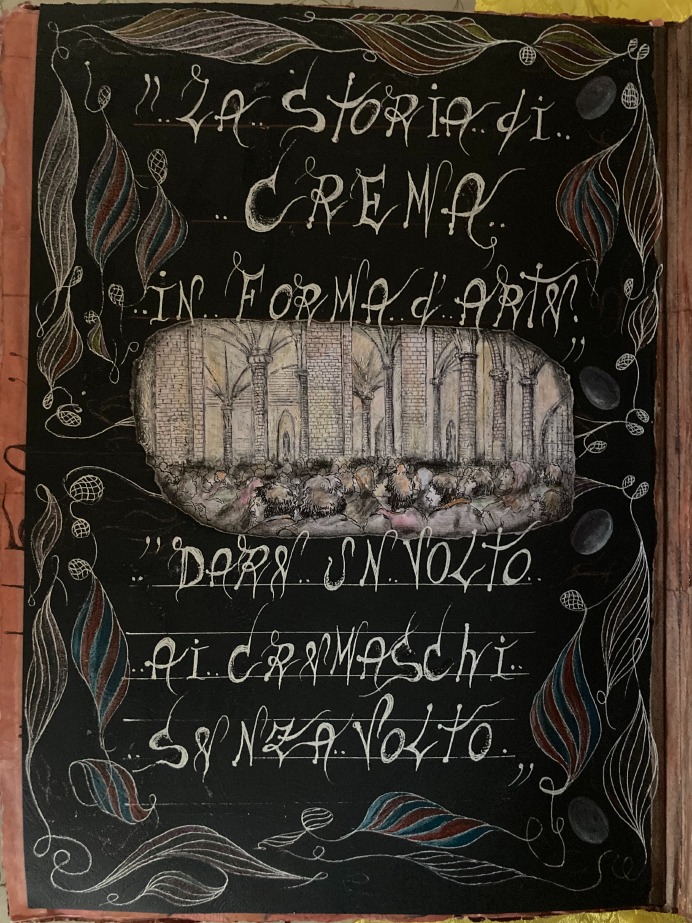 "..LA.. STORIA.. di..
..CREMA..
..IN.. FORMA.. d'ARTE.."
.."DARE.. UN.. VOLTO..
..Ai.. CREMASChi..
..SENZA.. VOLTO.."